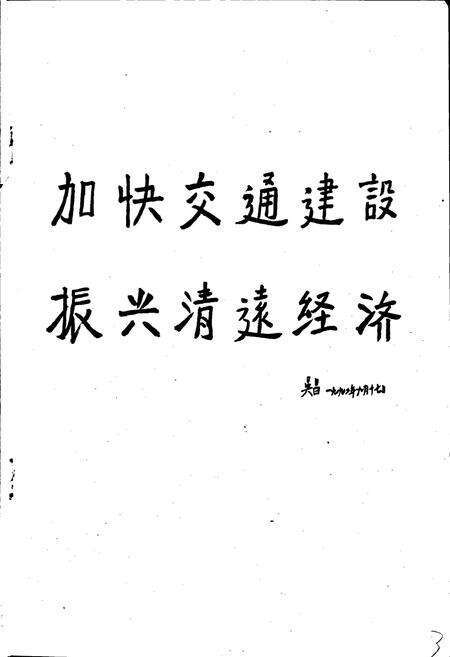 加快交通建設
振兴清遠经济
一九九二年九月十七日
3